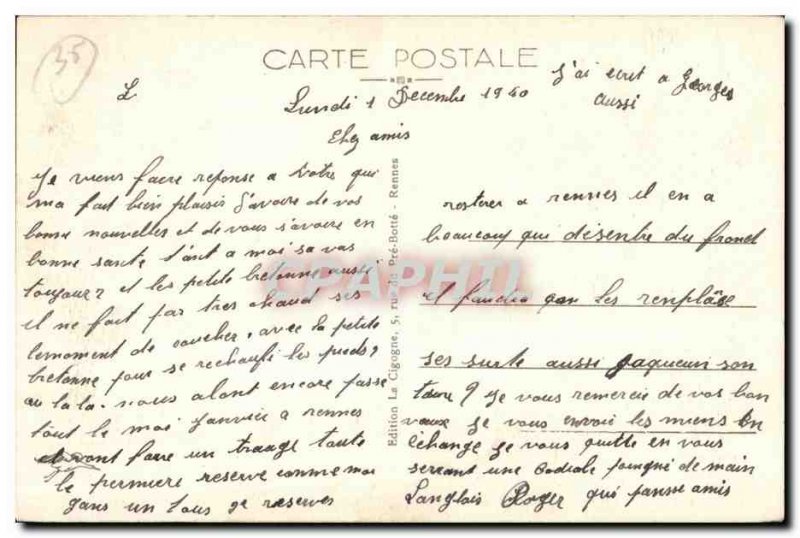 35
CARTE POSTALE
L
Lundi 1 Decembre 1940
J'ai ecrit a Georges
aussi
Chez amis
Je viens faere reponse a Notre qui
ma fait bien plaisir d'avoire de vos
bonne nouvelles et de vous s'avoire en
bonne sante tant a moi sa vas
toujour? et les petite bretonne aussi
il ne fait pas tres chaud ses
lemoment de coucher, avec la petite
bretonne pour se rechaufé les pieds?
au la la. nous alont encore passe
tout le moi Janvier a rennes
vont faire un tirage toute
la permiere reserve comme moi
dans un tous de reserves
rosterer a rennes il en a
beaucoup qui désentre du fronet
il faudra qon les renplâse
ses surte aussi jaqueun son
toure? Je vous remercie de vos bon
vœux je vous envoi les miens en
échange je vous quitte en vous
serrant une Codiale poingné de main
Langlois Roger qui pansse amis
Edition La Cigogne, 5, rue du Pré-Botté - Rennes
CPAPHIL